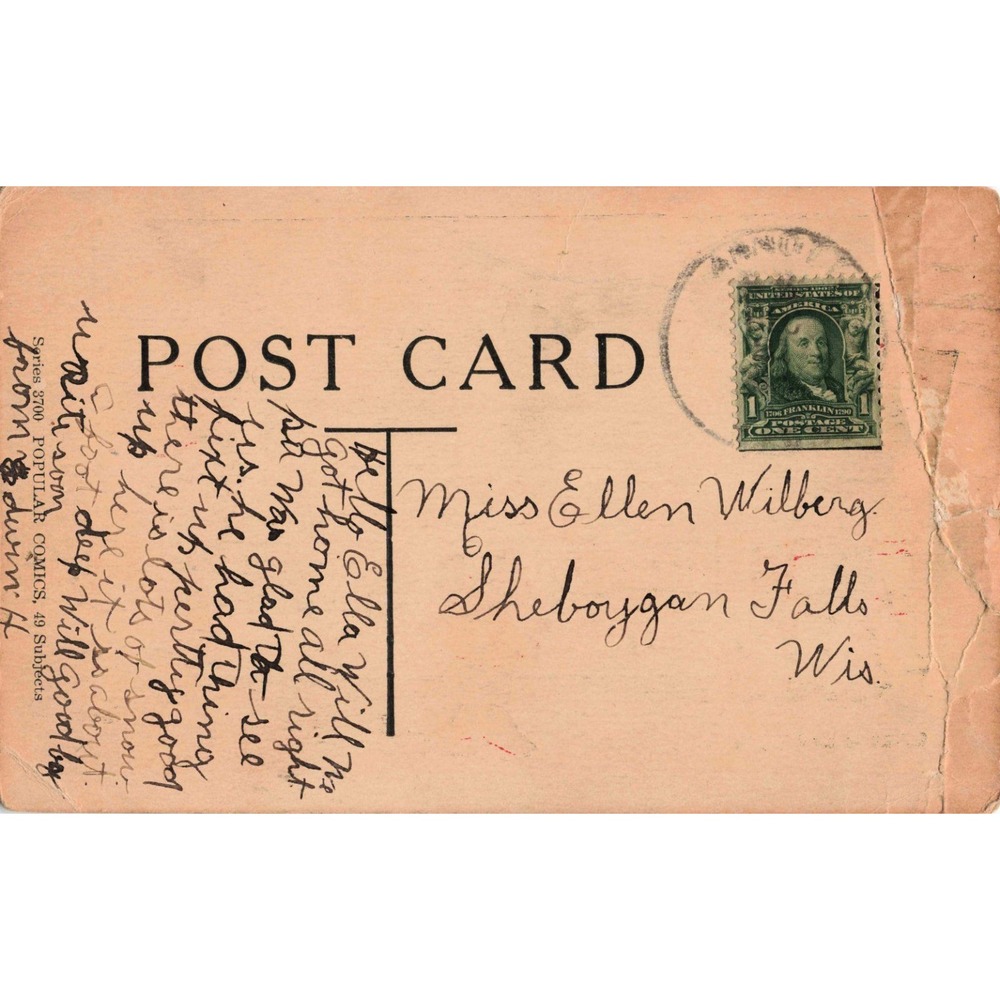 POST CARD
SERIES 1902
UNITED STATES OF
AMERICA
1706 FRANKLIN 1790
1 1
POSTAGE
ONE CENT
Miss Ellen Wilberg.
Sheboygan Falls
Wis.
Hello Ella Will We
Got home all right
pa Was glad to see
us. he had things
fixt up perty good
there is lots of snow
up here it is about
a foot deep Will good by
rite soon
from Edwin H
Series 3700 POPULAR COMICS, 49 Subjects